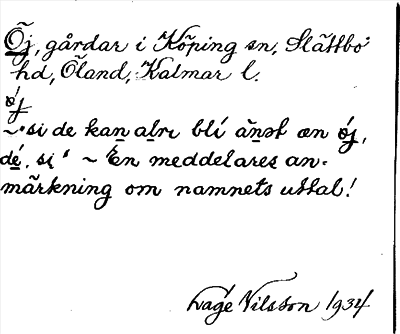 Öj, gårdar i Köping sn, Slättbo
hd, Öland, Kalmar l.
ǿj
~ "si de kan alrı blí ànət æn ǿj,
dé, si" ~ En meddelares an-
märkning om namnets uttal!
Åage Nilsson 1934